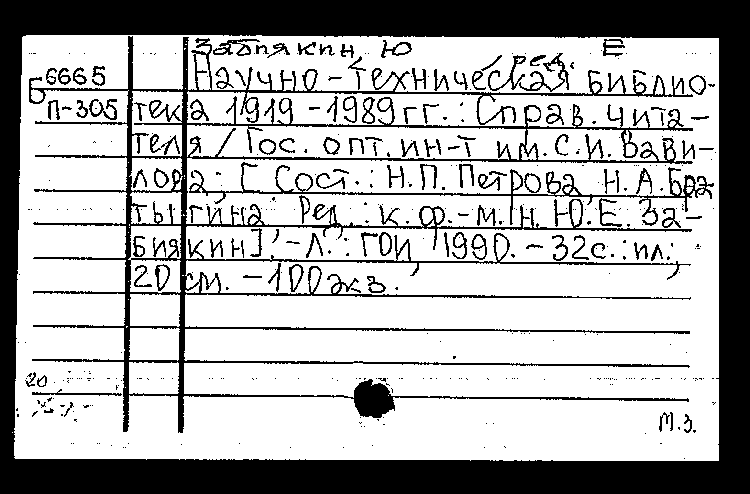 Забиякин, Ю Е
ред.
Б 6665
П-305
Научно-техническая библио-
тека 1919-1989 гг. : Справ. чита-
теля / Гос. опт. ин-т им. С.И. Вави-
лова; [Сост.: Н.П. Петрова, Н.А. Бра-
тыгина. Ред.: к.ф.-м.н. Ю.Е. За-
биякин]. - Л.: ГОИ, 1990. - 32с.: ил.;
20 см. - 100 экз.
20
М.З.